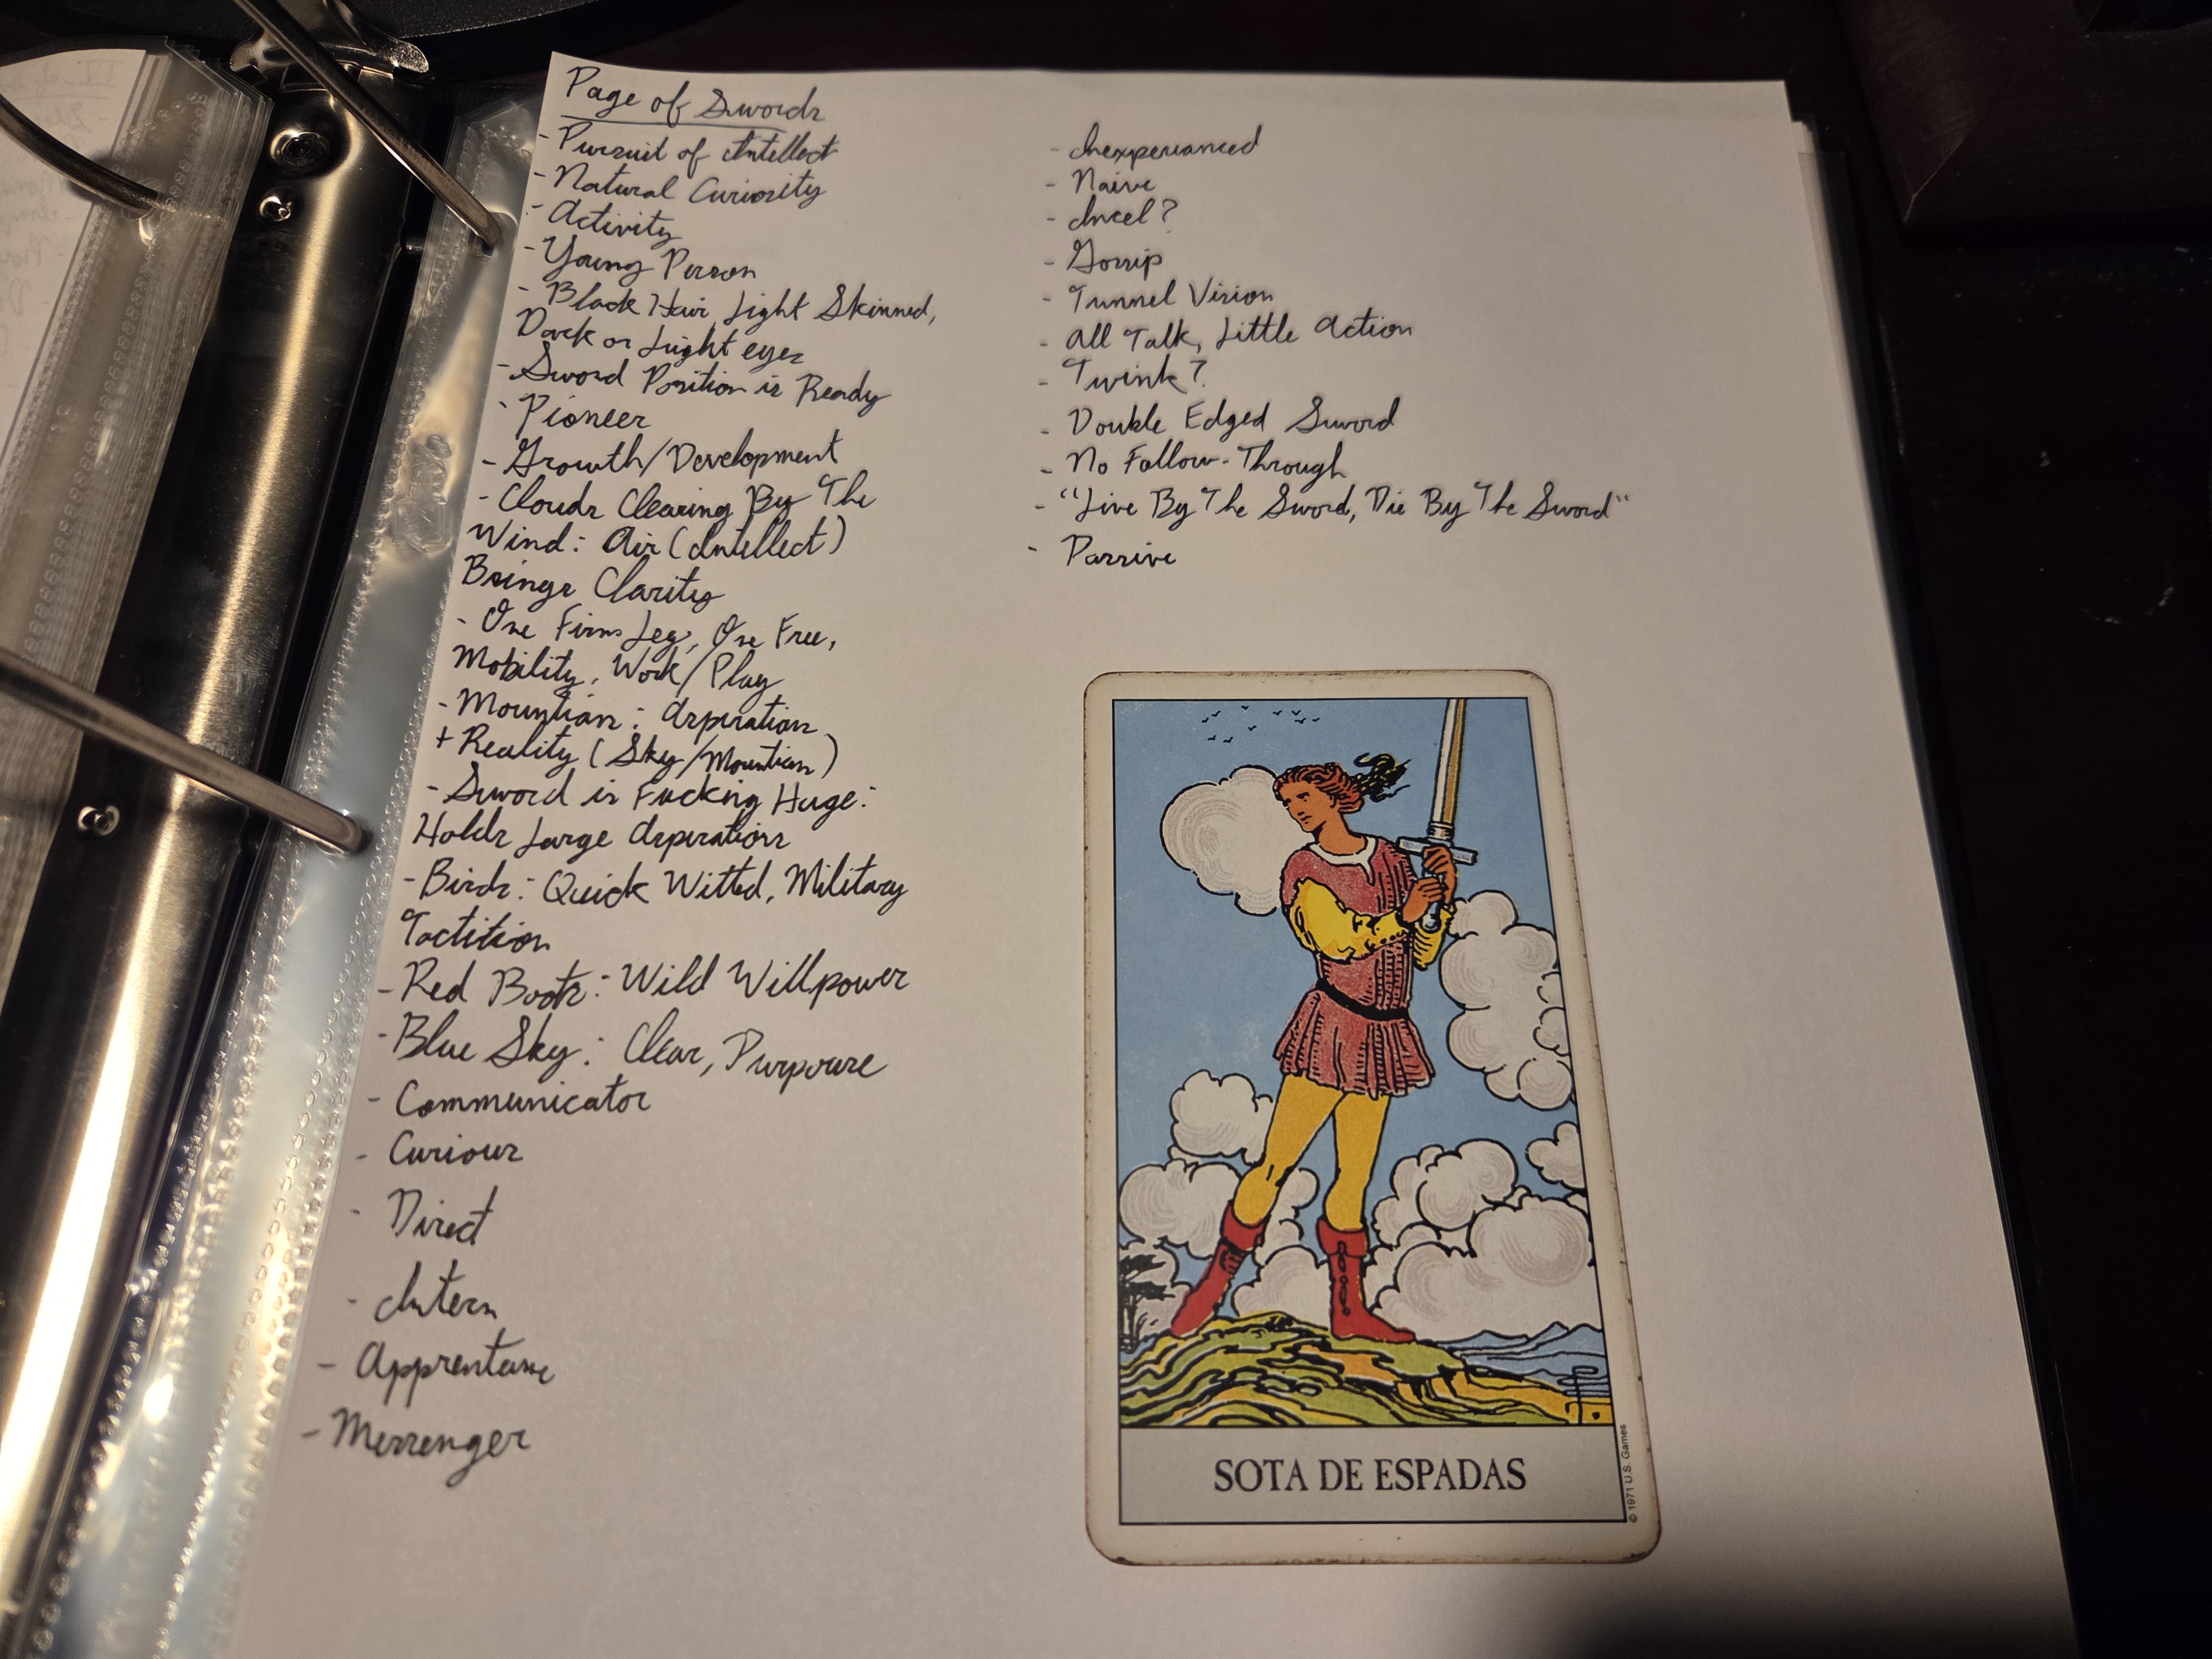 Page of Swords
- Pursuit of Intellect
- Natural Curiosity
- Activity
- Young Person
- Black Hair, Light Skinned,
Dark or Light eyes
- Sword Position is Ready
- Pioneer
- Growth/Development
- Clouds Clearing By The
Wind: Air (Intellect)
Brings Clarity
- One Firm Leg, One Free,
Mobility, Work/Play
- Mountian: Aspiration
+ Reality (Sky/Mountian)
- Sword is Fucking Huge:
Holds Large Aspirations
- Birds: Quick Witted, Military
Tactition
- Red Boots: Wild Willpower
- Blue Sky: Clear, Purpouse
- Communicator
- Curious
- Direct
- Intern
- Apprentace
- Messenger
- Inexperianced
- Naive
- Incel?
- Gossip
- Tunnel Vision
- All Talk, Little Action
- Twink?
- Double Edged Sword
- No Follow-Through
- "Live By The Sword, Die By The Sword"
- Passive
SOTA DE ESPADAS
© 1971 U.S. Games